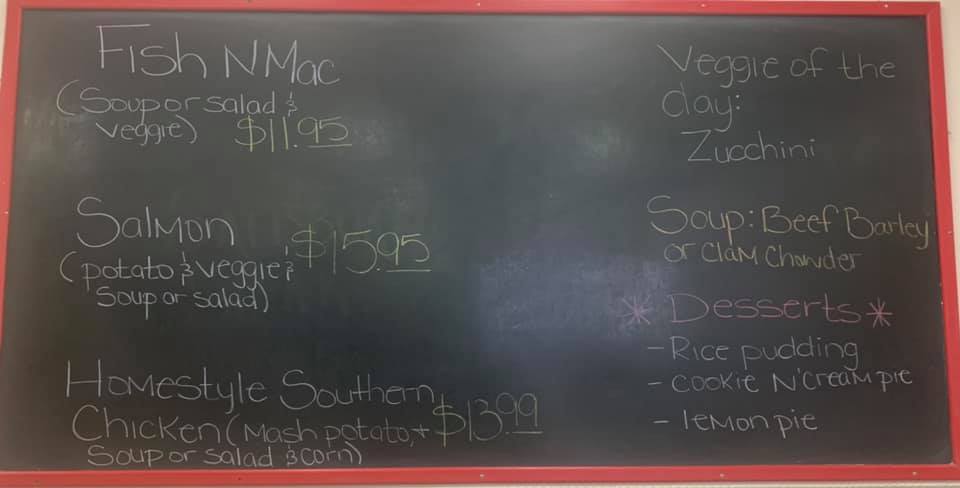 Fish N Mac
(Soup or salad &
veggie) $11.95
Salmon
(potato & veggie & $15.95
Soup or salad)
Homestyle Southern
Chicken (Mash potato, + $13.99
Soup or salad & corn)
Veggie of the
day:
Zucchini
Soup: Beef Barley
or Clam Chowder
* Desserts *
- Rice pudding
- Cookie N' Cream pie
- lemon pie